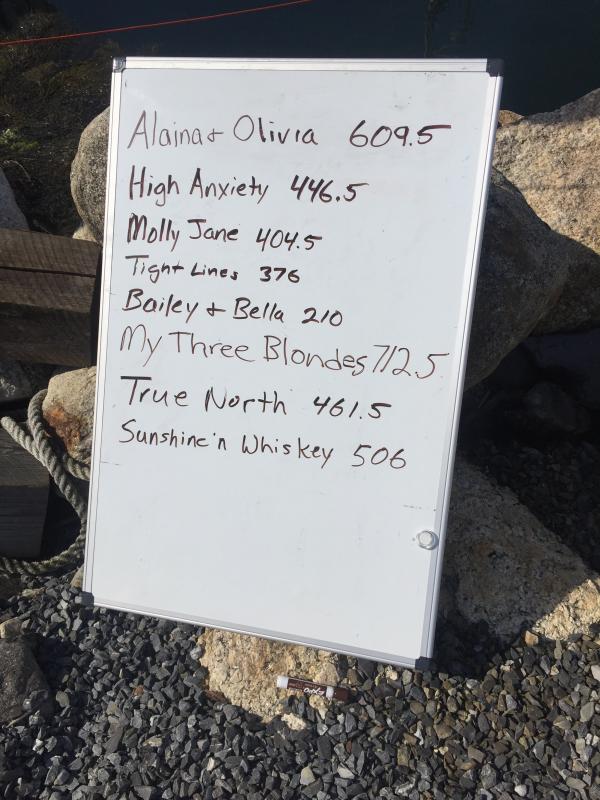 Alaina + Olivia 609.5
High Anxiety 446.5
Molly Jane 404.5
Tight Lines 376
Bailey + Bella 210
My Three Blondes 712.5
True North 461.5
Sunshine'n Whiskey 506